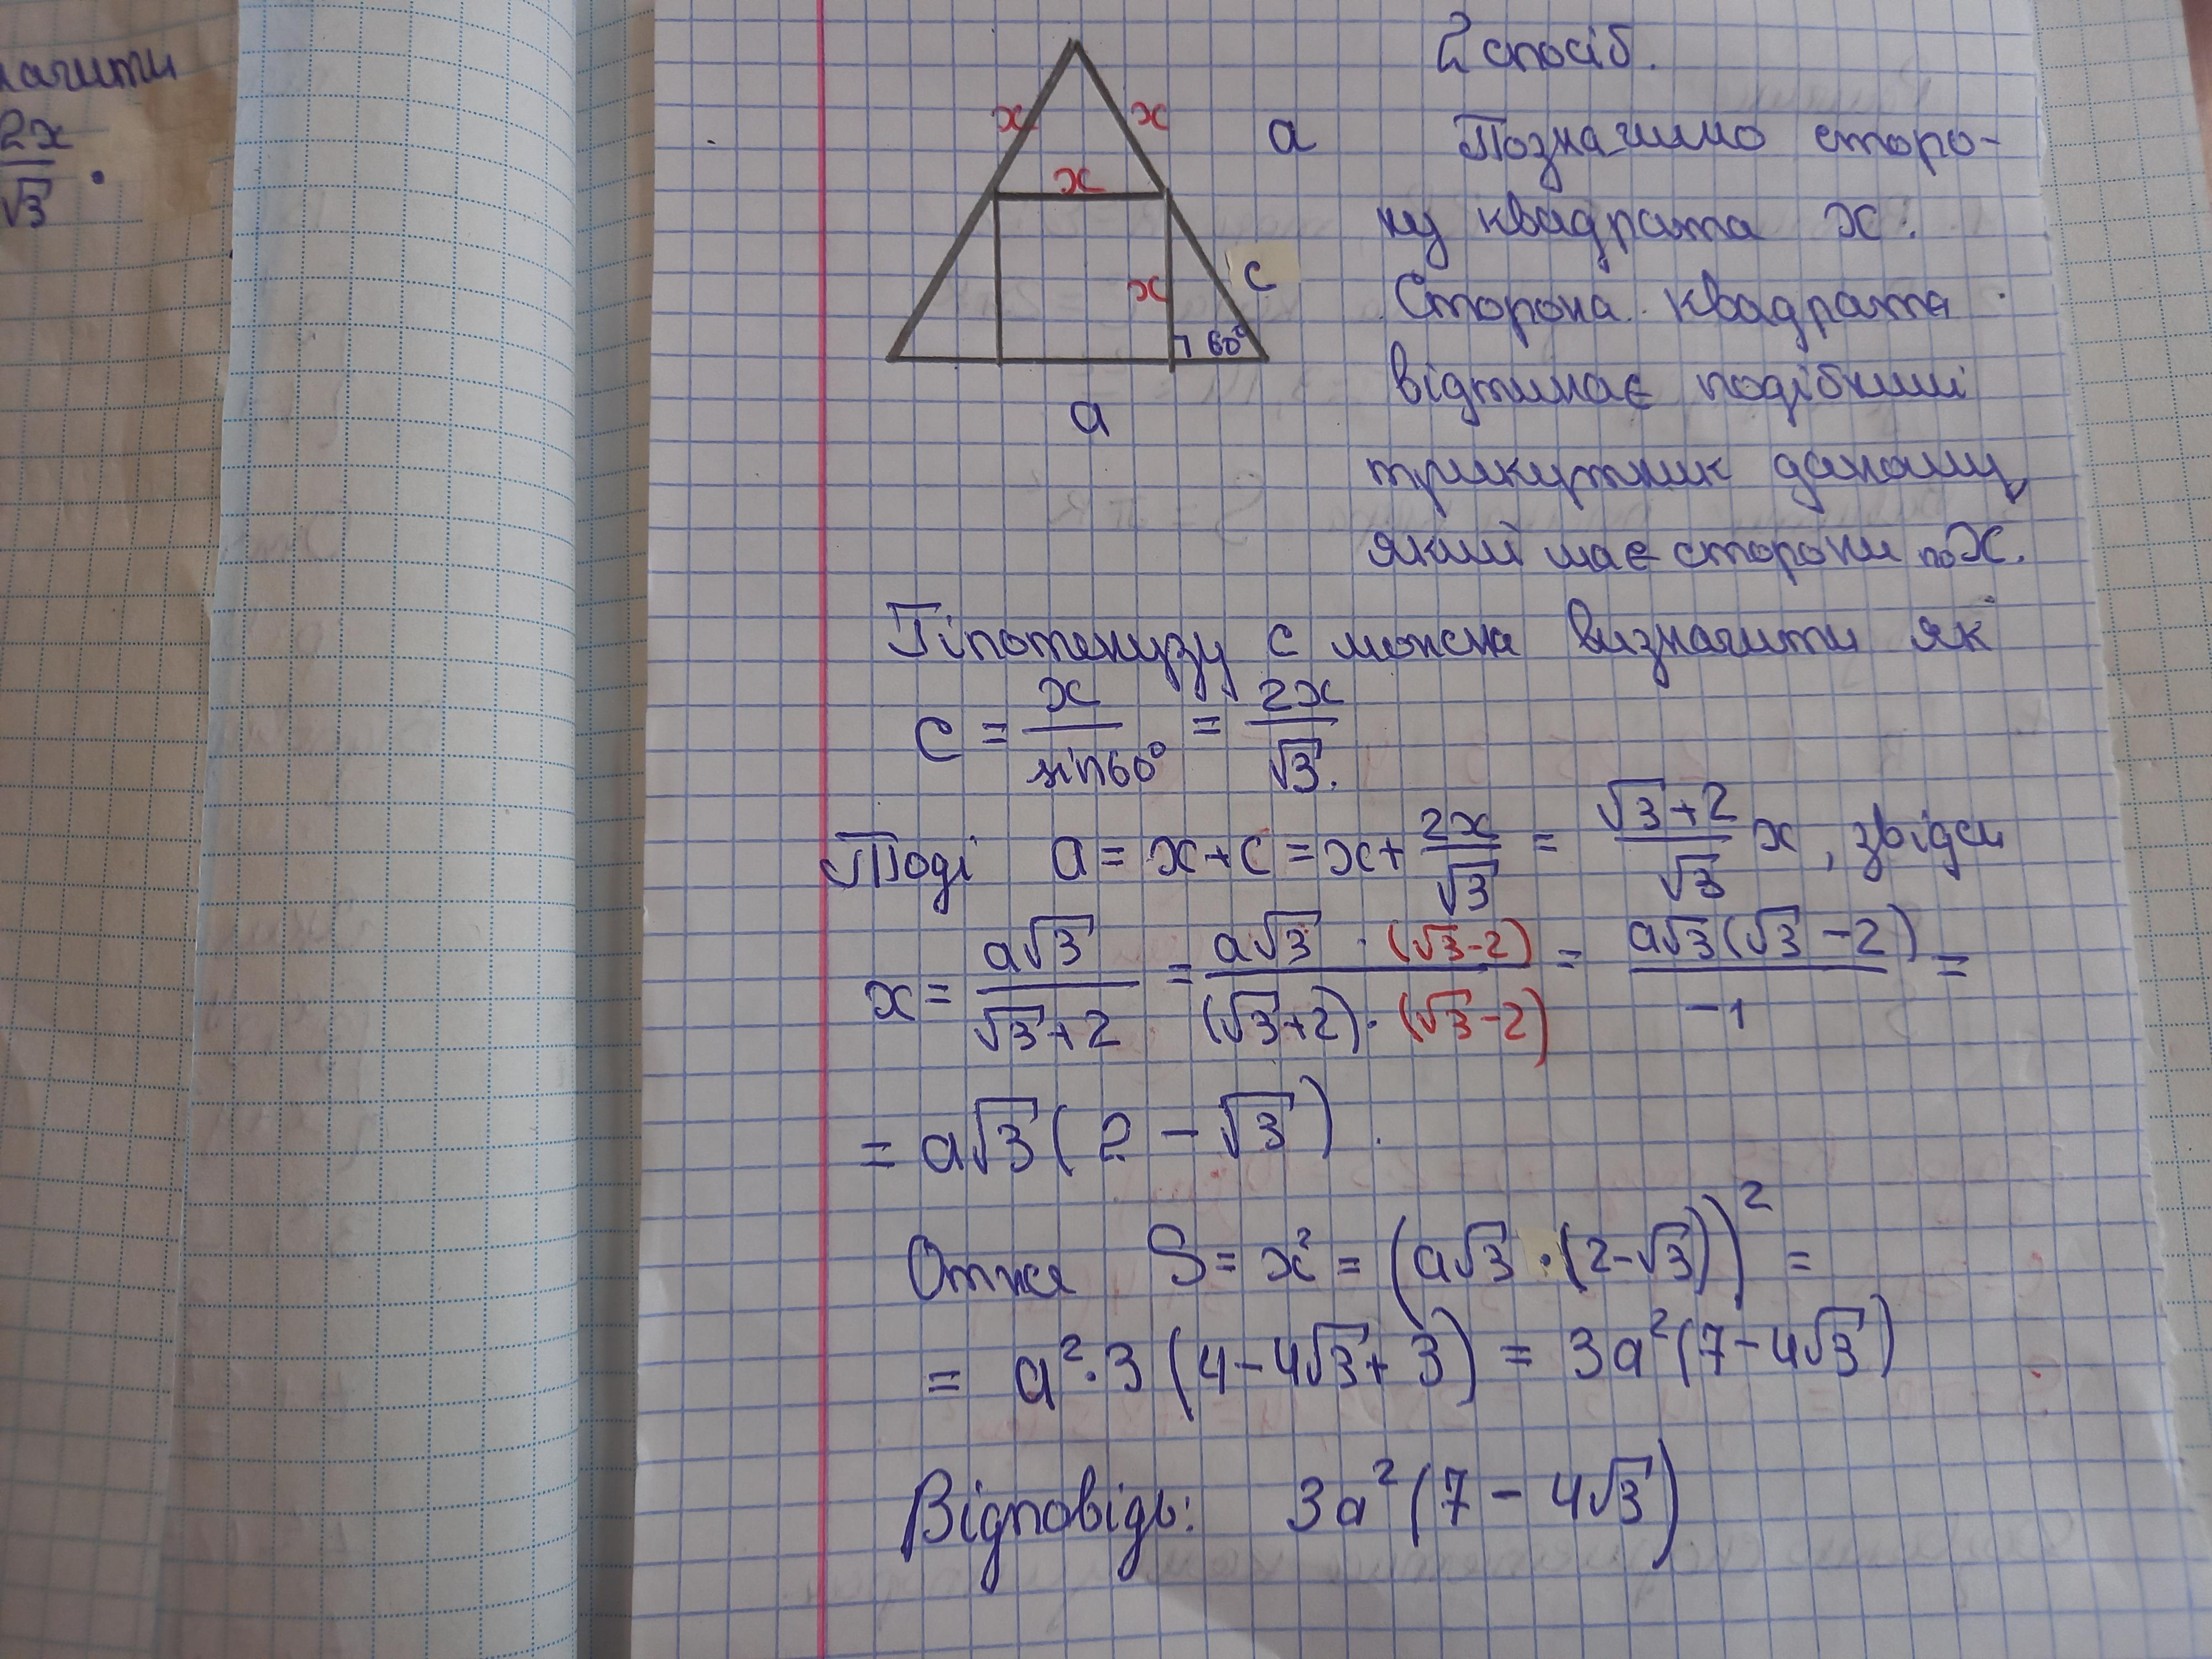 начити
2x
√3 .
2 спосіб.
x x
x
a
x
c
60°
a
Позначимо сторо-
ну квадрата x.
Сторона квадрата
відтинає подібний
трикутник даному,
який має сторони по x.
Гіпотенузу c можна визначити як
c = x / sin60° = 2x / √3.
Тоді a = x + c = x + 2x/√3 = (√3+2)/√3 x, звідси
x = a√3 / (√3+2) = a√3 · (√3-2) / (√3+2) · (√3-2) = a√3(√3-2) / -1 =
= a√3(2 - √3).
Отже S = x² = (a√3 · (2-√3))² =
= a² · 3 (4 - 4√3 + 3) = 3a²(7 - 4√3)
Відповідь: 3a²(7 - 4√3)